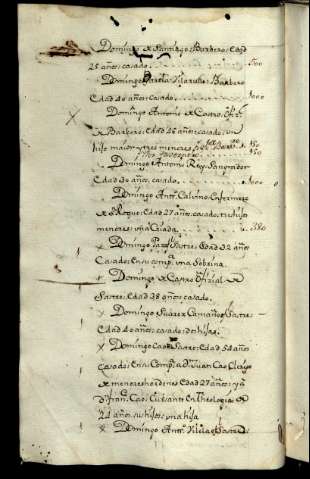 Domingo de Santiago Barbero. Edad
25 años, casado. 500
Domingo Barbero
Edad 40 años, Casado. 1000
Domingo Antonio de Castro
de Barbero. Edad 26 años, casado, un
hijo maior y tres menores
Domingo Antonio Rey Sangrador
Edad 30 años, casado. 1000
Domingo Antt.o Calvino Enfermero
de Sn Roque: Edad 27 años, casado, tres hijos
menores, una Criada
x Domingo Sastre: Edad 32 años
Casado: En su comp.a una Sobrina
x Domingo de Castro ofizial de
Sastre: Edad 38 años, casado.
x Domingo Suarez Camaño, Sastre
Edad 40 años, casado: dos hijas.
x Domingo Cao Sastre: Edad 54 años
casado: En su Comp.a d.n Juan Cao Clerigo
de menores hordenes: Edad 27 años: y
Fran.co Cao: Cursante En Theologia: de
21 años, sus hijos: y una hija
x Domingo Antt.o Sastre